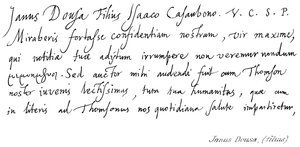 Janus Dousa Filius Isaaco Casaubono. V. C. S. P.
Miraberis fortasse confidentiam nostram, vir maxime,
qui notitiæ tuæ aditum irrumpere non veremur nondum
Sed auctor mihi audendi fuit cum Thomson
noster iuvenis lectissimus, tum tua humanitas, qua cum
in literis ad Thomsonum nos quotidiana salute impartiretur,
Janus Dousa, (filius)